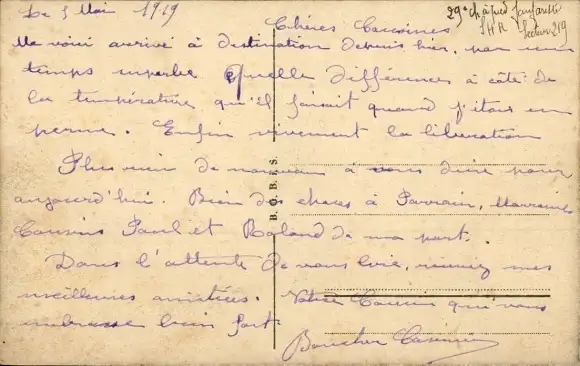 Le 5 Mai 1919
29e
Secteur 219
Chères Cousines
Me voici arrivé à destination depuis hier, par un
temps superbe quelle différence à côté de
la température qu'il faisait quand j'étais en
perme. Enfin vivement la libération
Plus rien de nouveau à vous dire pour
aujourd'hui. Bien des choses à Parrain, Marraine
Cousins Paul et Roland de ma part.
Dans l'attente de vous lire, recevez mes
meilleures amitiées. Votre Cousin qui vous
embrasse bien fort
Boucher Casimir
B. O. B. F. S.